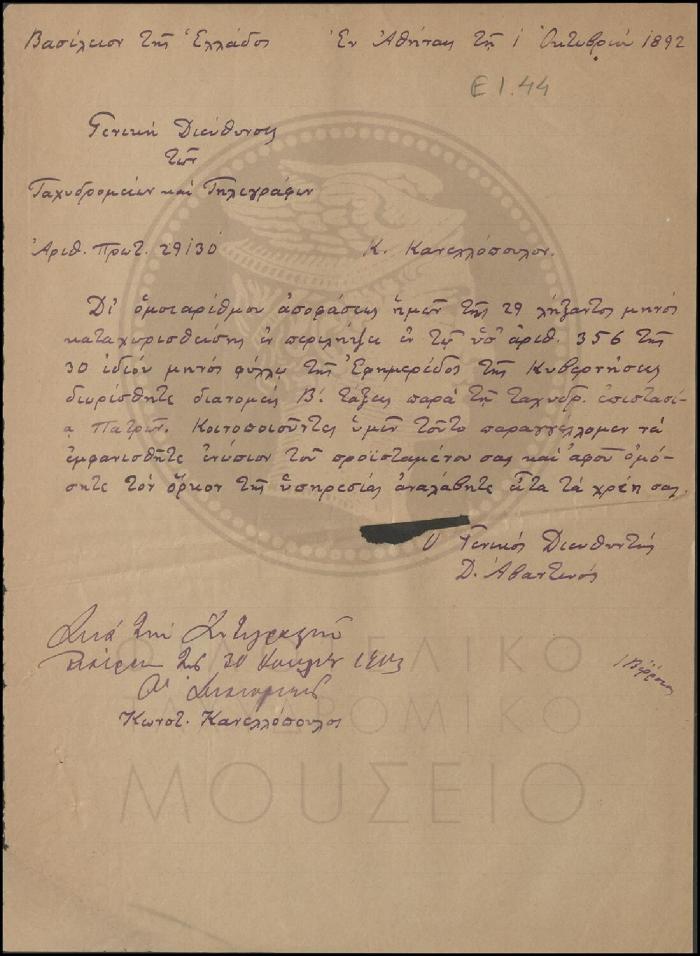 Βασίλειον τῆς Ἑλλάδος Ἐν Ἀθήναις τῇ 1 Ὀκτωβρίου 1892
Ε 1.44
Γενική Διεύθυνσις
τῶν
Ταχυδρομείων και Τηλεγράφων
Ἀριθ. Πρωτ. 29130 Κ. Κανελλόπουλον.
Δι' ὁμοιαρίθμου ἀποφάσεως ἡμῶν τῆς 29 λήξαντος μηνός
καταχωρισθείσης ἐν περιλήψει ἐν τῷ ὑπ' ἀριθ. 356 τῆς
30 ἰδίου μηνός φύλλῳ τῆς Ἐφημερίδος τῆς Κυβερνήσεως
διωρίσθητε διανομεύς Β'. τάξεως παρά τῇ ταχυδρ. ἐπιστασί-
ᾳ Πατρῶν. Κοινοποιοῦντες ὑμῖν τοῦτο παραγγέλλομεν νά
ἐμφανισθῆτε ἐνώπιον τοῦ προϊσταμένου σας καί ἀφοῦ ὀμό-
σητε τόν ὅρκον τῆς ὑπηρεσίας ἀναλάβητε ἅμα τά χρέη σας.
Ὁ Γενικός Διευθυντής
Δ. Ἀβαντινός
1903
Κωνστ. Κανελλόπουλος
ΦΙΛΟΤΕΛΙΚΟ
ΤΑΧΥΔΡΟΜΙΚΟ
ΜΟΥΣΕΙΟ